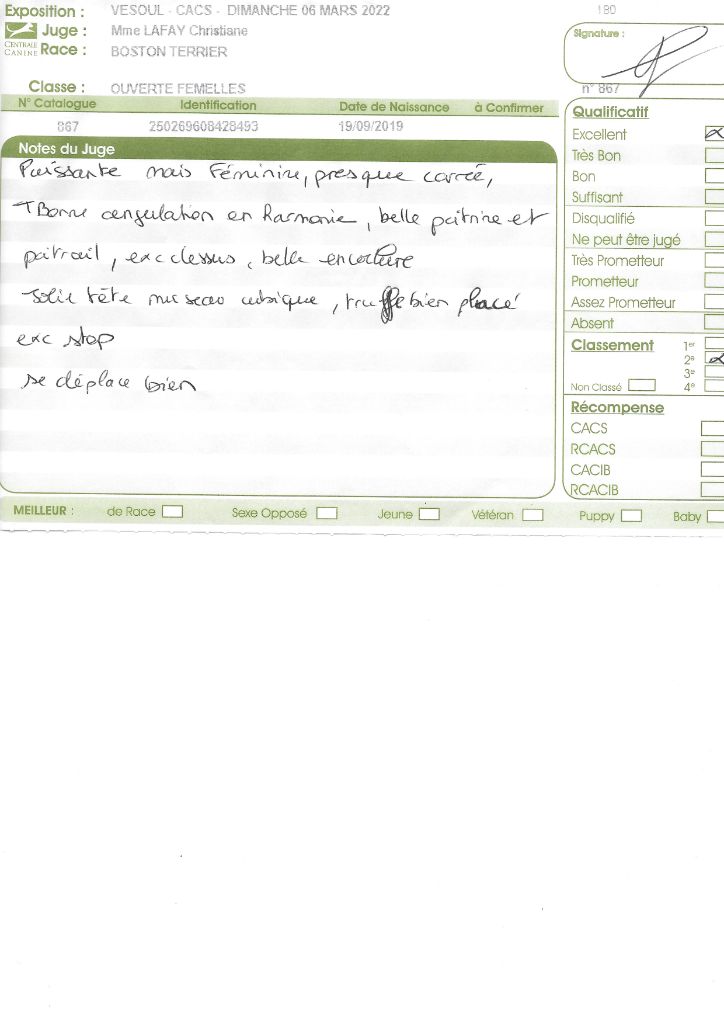 Exposition : VESOUL - CACS - DIMANCHE 06 MARS 2022 180
Juge : Mme LAFAY Christiane Signature :
CENTRALE CANINE
Race : BOSTON TERRIER
Classe : OUVERTE FEMELLES n° 867
N° Catalogue Identification Date de Naissance à Confirmer
867 250269608428493 19/09/2019
Notes du Juge
Puissante mais Féminine, presque carrée,
TBonne angulation en harmonie, belle poitrine et
poitrail, exc dessus, belle encolure
Jolie tête museau cubique, truffe bien placé
exc stop
se déplace bien
Qualificatif
Excellent
Très Bon
Bon
Suffisant
Disqualifié
Ne peut être jugé
Très Prometteur
Prometteur
Assez Prometteur
Absent
Classement 1er
2e
3e
Non Classé 4e
Récompense
CACS
RCACS
CACIB
RCACIB
MEILLEUR : de Race Sexe Opposé Jeune Vétéran Puppy Baby